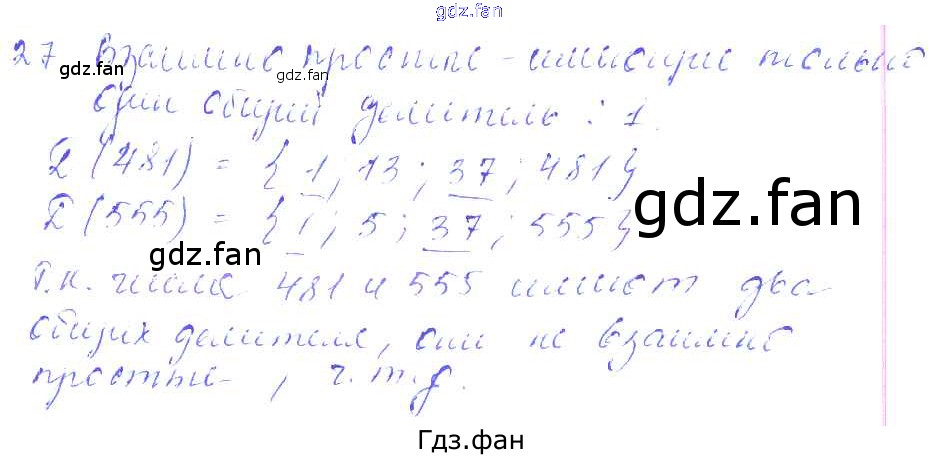 gdz.fan
27 Взаимно простые - имеющие только
gdz.fan
gdz.fan
один общий делитель : 1.
Д (481) = { 1; 13; 37; 481}
gdz.fan
Д (555) = { 1; 5; 37; 555}
gdz.fan
Т.к. числа 481 и 555 имеют два
общих делителя, они не взаимно
простые , ч.т.д.
Гдз.фан